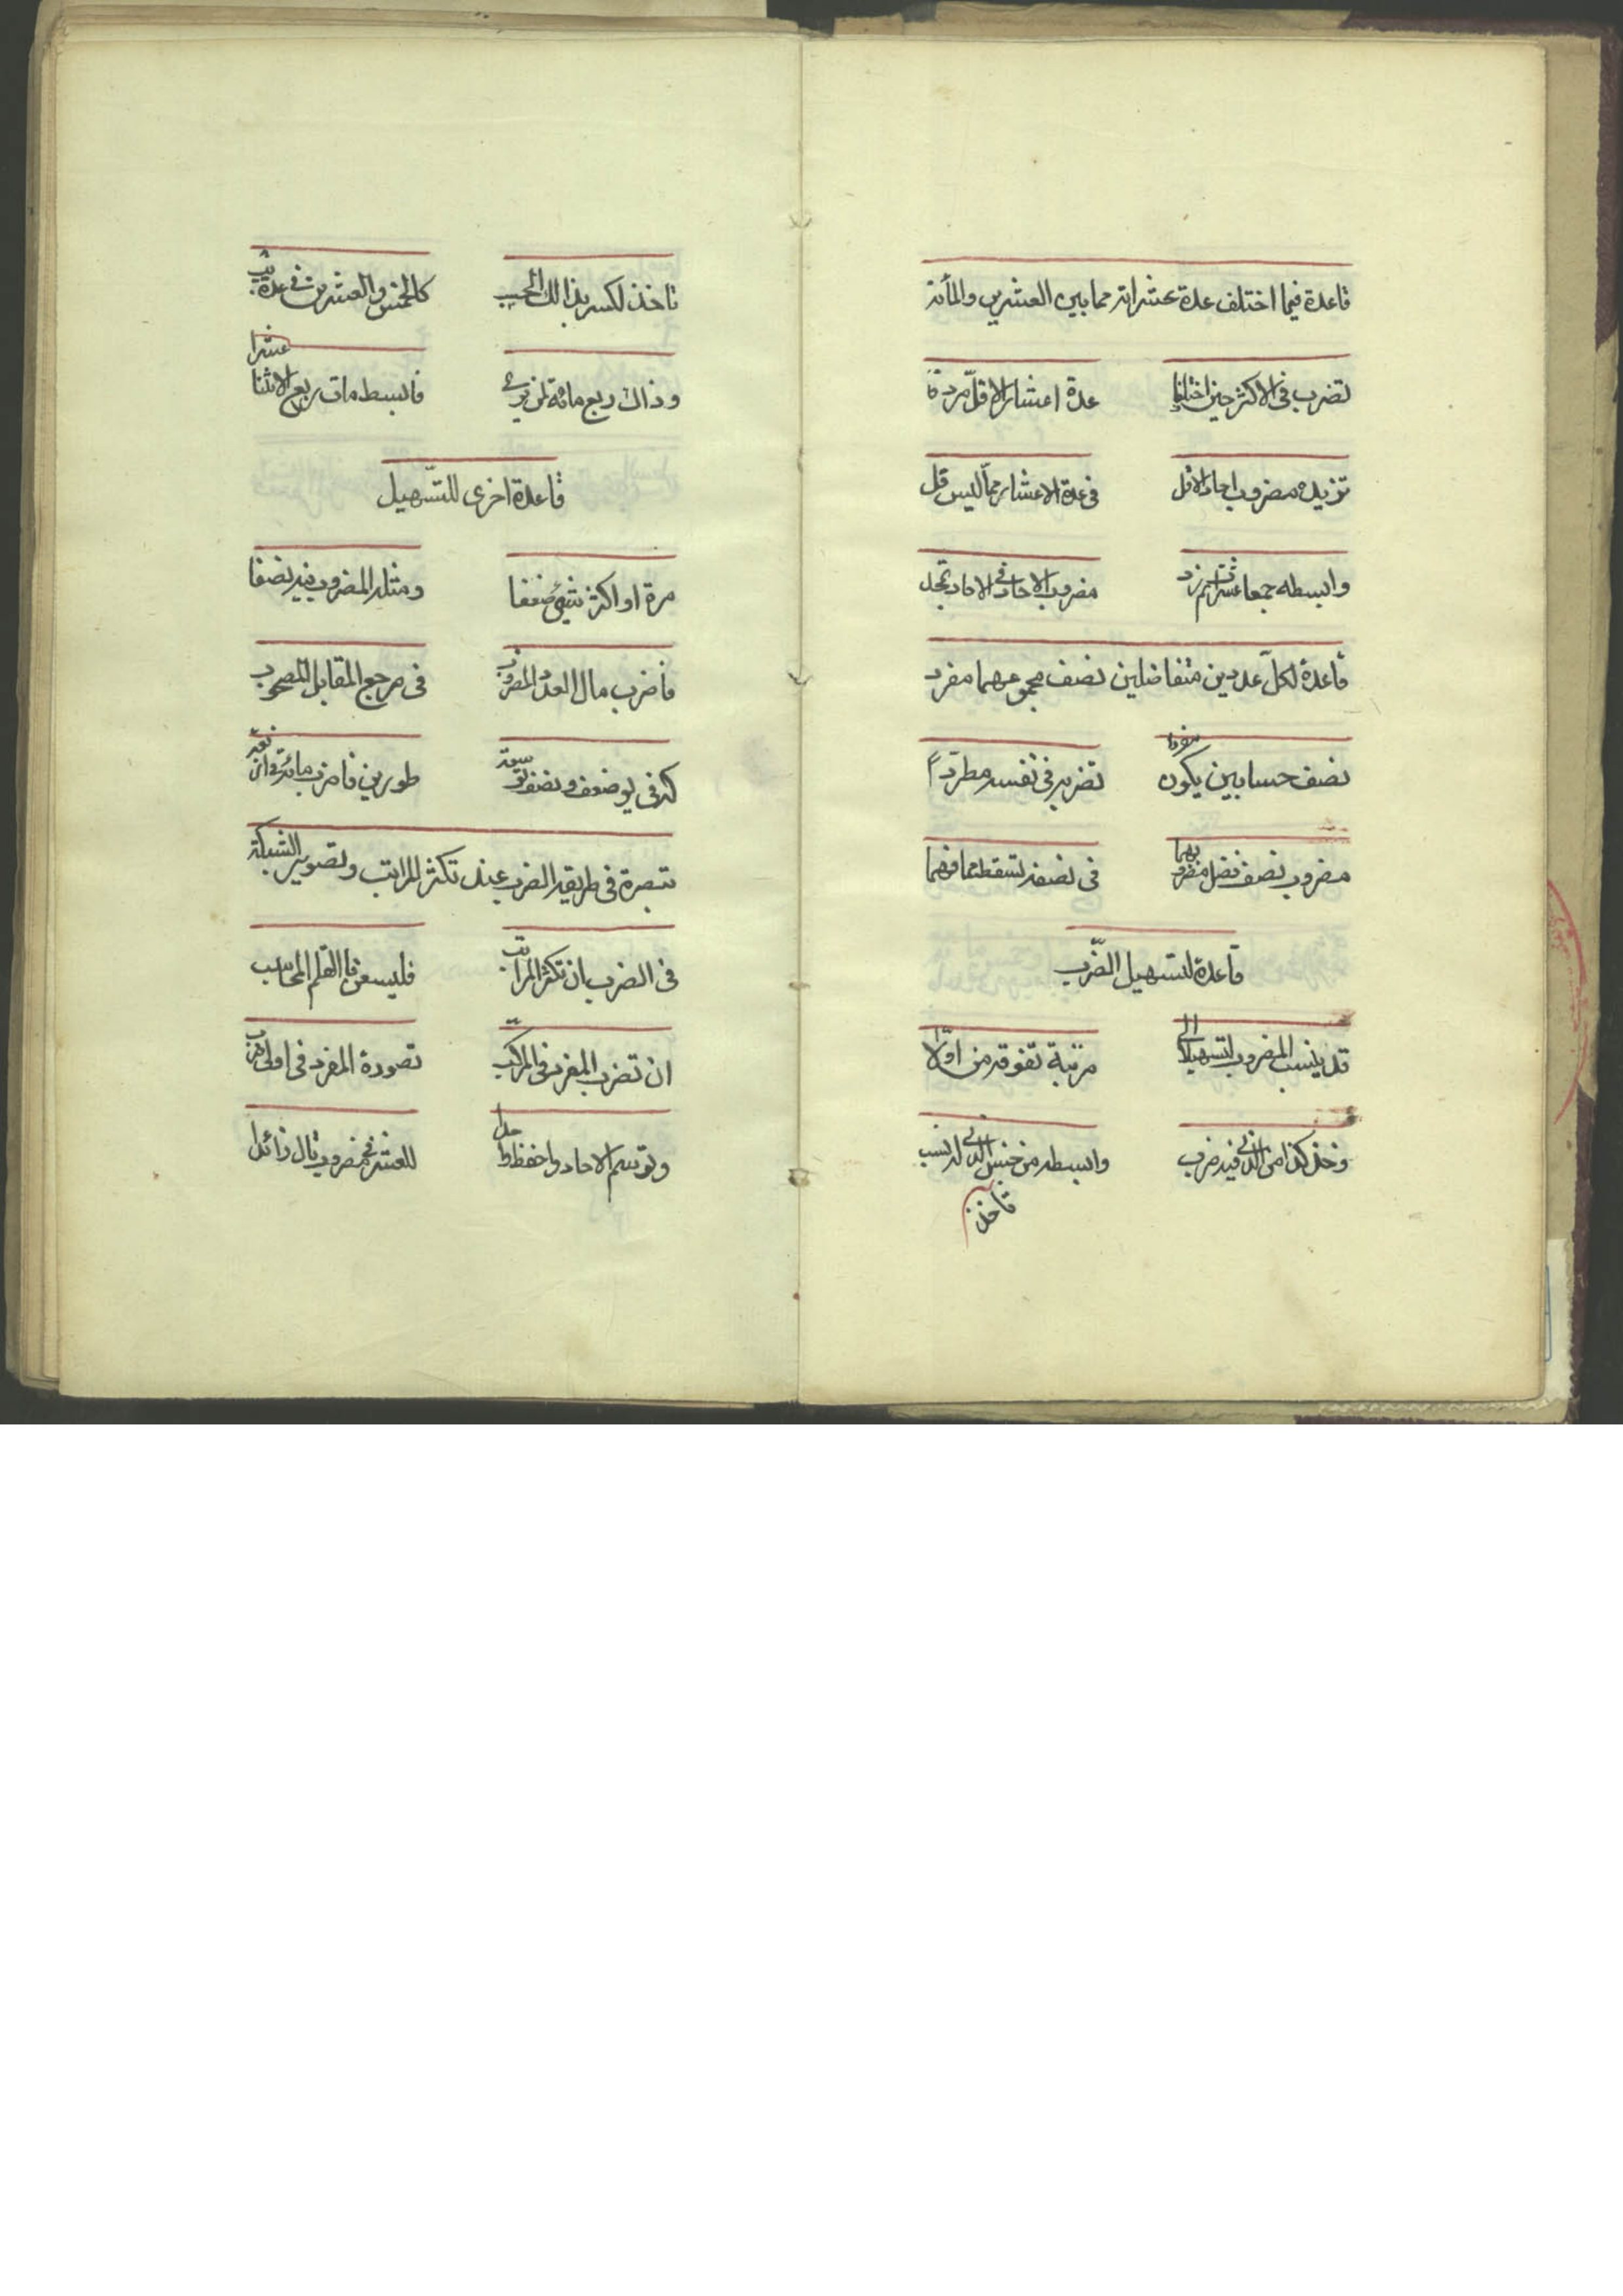 قاعدة فيما اختلف عدة عشراته مما بين العشرين والمأته
تضرب فى الاكثر حين اختلفا عدة اعشار الاقل مردفا
تزيده مضروب احاد الاقل فى عدة الاعشار مما ليس قل
وابسطه جمعا عشرات ثم زد مضروب الاحاد فى الاحاد تجد
قاعدة لكل عددين متفاضلين نصف مجموعهما مفرد
نصف حسابين يكون مفردا تضربه فى نفسه مطردا
مضروب نصف فضل مفرد بهما فى نصفه تسقط مما فهما
قاعدة لتسهيل الضرب
قد ينسب المضروب لتسهيلا الى مرتبة تفوقه من اولا
وخذ كذا من الذى فيه ضرب وابسطه من جنس الذى له نسب
تاخذ
تاخذ لكسر بذالك الحسب كالخمس والعشرين فى عدة
وذاك ربع مائة فابسط مات ربع الاثنا عشرا
قاعدة اخرى للتسهيل
مرة او اكثر شيئ ضعفا ومثله المضروب فيه نصفا
فاضرب مال العدد المضروب فى مرجع المقابل المصحوب
كه فى يو ضعف ونصف طورين فاضرب مائة فى
تبصرة فى طريقه الضرب عند تكثر المراتب وتصوير الشبكة
فى الضرب بان تكثر المراتب فليسعن بالقلم المحاسب
ان تضرب المفرد فى المركب تصورة المفرد فى اولى
وترسم الاحاد واحفظ للعشر فى مضروب تال زائدا